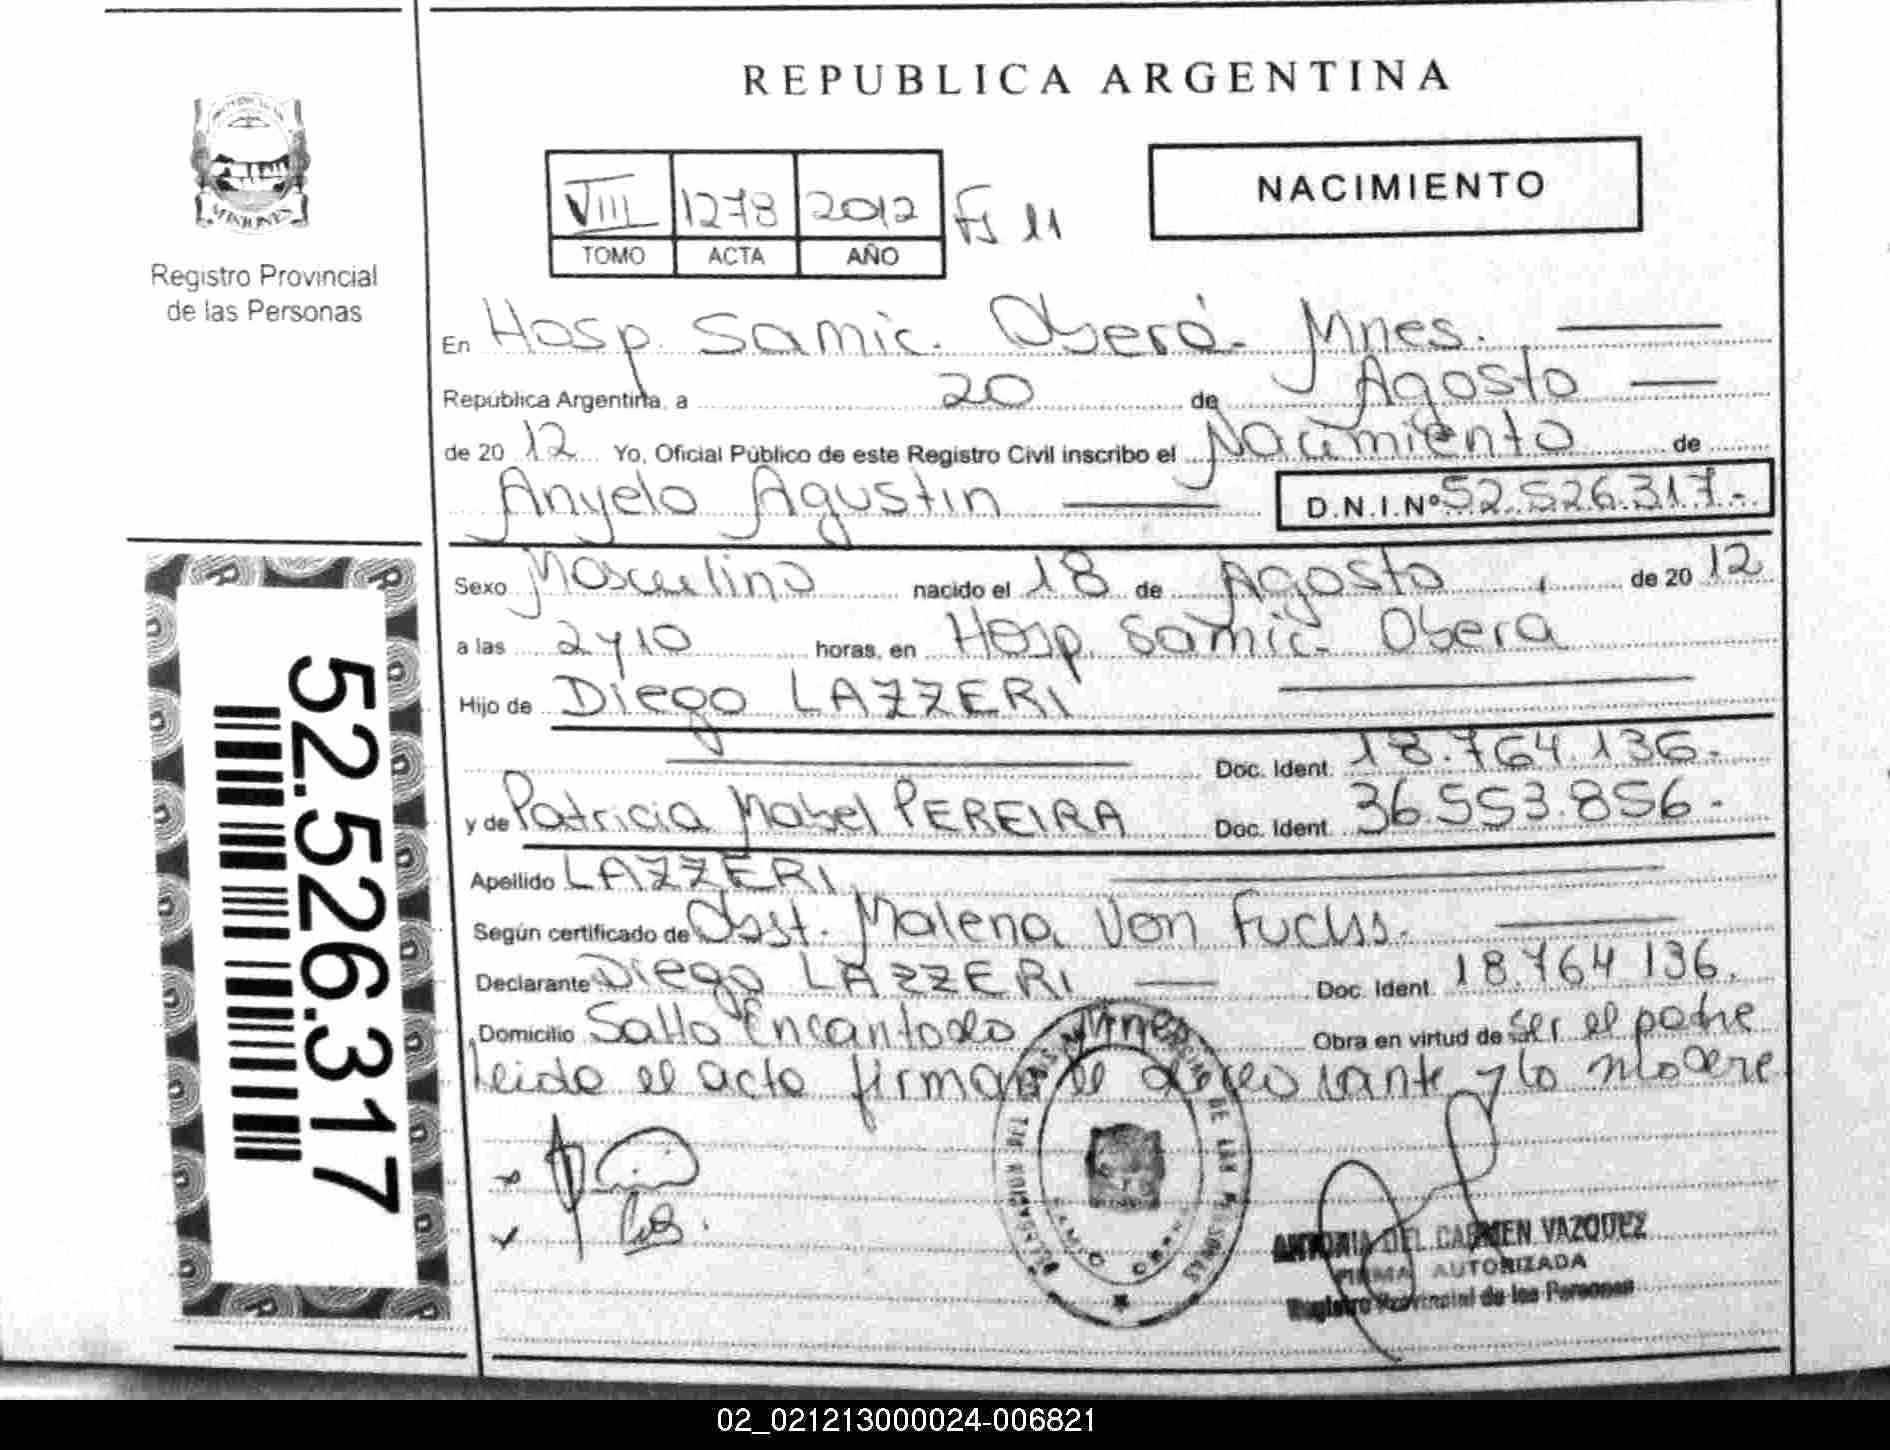 REPUBLICA ARGENTINA
NACIMIENTO
VIII 1278 2012 Fs 11
TOMO ACTA AÑO
MISIONES
Registro Provincial
de las Personas
En Hosp. Samic. Oberá. Mnes.
República Argentina, a 20 de Agosto
de 2012 Yo, Oficial Público de este Registro Civil inscribo el Nacimiento de
Anyelo Agustin D.N.I.Nº 52.526.317.-
Sexo Masculino nacido el 18 de Agosto de 2012
a las 2 y 10 horas, en Hosp. Samic. Obera
Hijo de Diego LAZZERI
Doc. Ident. 18.764.136.-
y de Patricia Mabel PEREIRA Doc. Ident. 36.553.856.-
Apellido LAZZERI
Según certificado de Obst. Malena Von Fuchs.
Declarante Diego LAZZERI Doc. Ident. 18.764.136.
Domicilio Salto Encantado Mnes Obra en virtud de ser el padre
Leida el acta firma el declarante y la madre
52.526.317
ANTONIA DEL CARMEN VAZQUEZ
FIRMA AUTORIZADA
Registro Provincial de las Personas
02_021213000024-006821